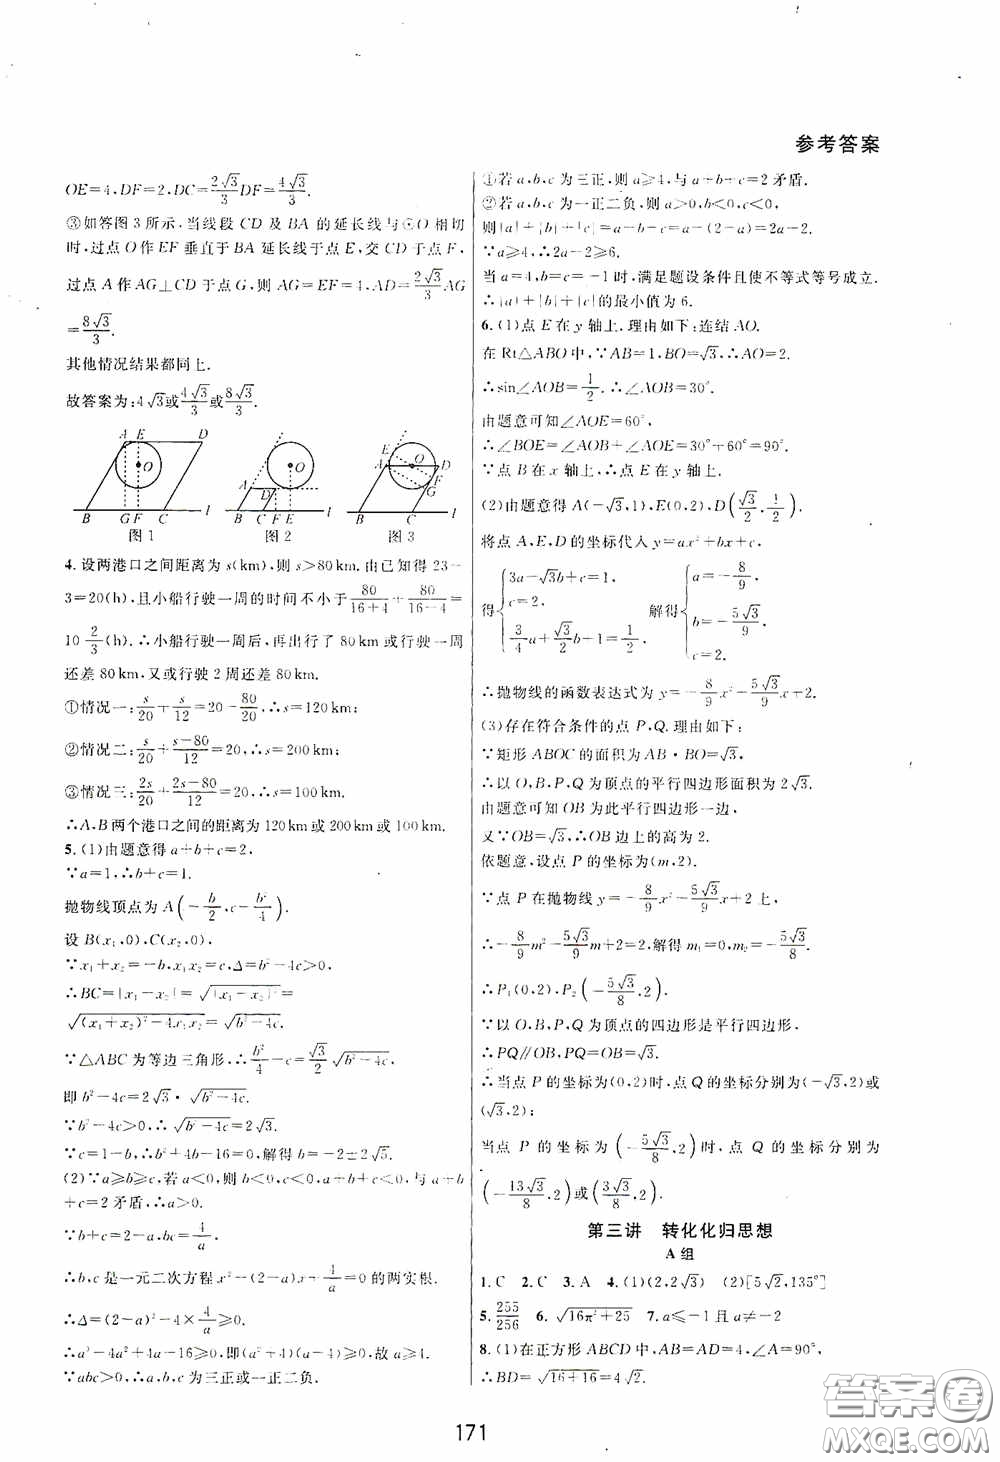 参考答案
OE=4,DF=2,DC=\frac{2\sqrt{3}}{3}DF=\frac{4\sqrt{3}}{3}.
③如答图3所示,当线段CD及BA的延长线与⊙O相切
时,过点O作EF垂直于BA延长线于点E,交CD于点F,
过点A作AG⊥CD于点G,则AG=EF=4,AD=\frac{2\sqrt{3}}{3}AG
=\frac{8\sqrt{3}}{3}.
其他情况结果都同上.
故答案为:4\sqrt{3}或\frac{4\sqrt{3}}{3}或\frac{8\sqrt{3}}{3}.
A E D O B G F C l
图1
A D O B C F E l
图2
E A O D F G B C l
图3
4.设两港口之间距离为s(km),则s>80km.由已知得23-
3=20(h),且小船行驶一周的时间不小于\frac{80}{16+4}+\frac{80}{16-4}=
10\frac{2}{3}(h).∴小船行驶一周后,再出行了80km或行驶一周
还差80km,又或行驶2周还差80km.
①情况一:\frac{s}{20}+\frac{s}{12}=20-\frac{80}{20},∴s=120km;
②情况二:\frac{s}{20}+\frac{s-80}{12}=20,∴s=200km;
③情况三:\frac{2s}{20}+\frac{2s-80}{12}=20,∴s=100km.
∴A,B两个港口之间的距离为120km或200km或100km.
5.(1)由题意得a+b+c=2,
∵a=1,∴b+c=1.
抛物线顶点为A(-\frac{b}{2},c-\frac{b²}{4}).
设B(x₁,0),C(x₂,0),
∵x₁+x₂=-b,x₁x₂=c,Δ=b²-4c>0,
∴BC=|x₁-x₂|=\sqrt{|x₁-x₂|²}=
\sqrt{(x₁+x₂)²-4x₁x₂}=\sqrt{b²-4c}.
∵△ABC为等边三角形,∴\frac{b²}{4}-c=\frac{\sqrt{3}}{2}\sqrt{b²-4c}.
即b²-4c=2\sqrt{3}·\sqrt{b²-4c}.
∵b²-4c>0,∴\sqrt{b²-4c}=2\sqrt{3}.
∵c=1-b,∴b²+4b-16=0,解得b=-2±2\sqrt{5}.
(2)∵a≥b≥c,若a<0,则b<0,c<0,a+b+c<0,与a+b
+c=2矛盾,∴a>0.
∵b+c=2-a,bc=\frac{4}{a}
∴b,c是一元二次方程x²-(2-a)x+\frac{4}{a}=0的两实根.
∴Δ=(2-a)²-4×\frac{4}{a}≥0,
∴a³-4a²+4a-16≥0,即(a²+4)(a-4)≥0,故a≥4.
∵abc>0,∴a,b,c为三正或一正二负.
①若a,b,c为三正,则a≥4,与a+b+c=2矛盾.
②若a,b,c为一正二负,则a>0,b<0,c<0,
则|a|+|b|+|c|=a-b-c=a-(2-a)=2a-2.
∵a≥4,∴2a-2≥6.
当a=4,b=c=-1时,满足题设条件且使不等式等号成立.
∴|a|+|b|+|c|的最小值为6.
6.(1)点E在y轴上.理由如下:连结AO.
在Rt△ABO中,∵AB=1,BO=\sqrt{3},∴AO=2.
∴sin∠AOB=\frac{1}{2},∴∠AOB=30°.
由题意可知∠AOE=60°.
∴∠BOE=∠AOB+∠AOE=30°+60°=90°.
∵点B在x轴上,∴点E在y轴上.
(2)由题意得A(-\sqrt{3},1),E(0,2),D(\frac{\sqrt{3}}{2},\frac{1}{2})
将点A,E,D的坐标代入y=ax²+bx+c,
得{3a-\sqrt{3}b+c=1, c=2, \frac{3}{4}a+\frac{\sqrt{3}}{2}b-1=\frac{1}{2}, 解得{a=-\frac{8}{9}, b=-\frac{5\sqrt{3}}{9}, c=2.
∴抛物线的函数表达式为y=-\frac{8}{9}x²-\frac{5\sqrt{3}}{9}x+2.
(3)存在符合条件的点P,Q.理由如下:
∵矩形ABOC的面积为AB·BO=\sqrt{3}.
∴以O,B,P,Q为顶点的平行四边形面积为2\sqrt{3}.
由题意可知OB为此平行四边形一边,
又∵OB=\sqrt{3},∴OB边上的高为2.
依题意,设点P的坐标为(m,2).
∵点P在抛物线y=-\frac{8}{9}x²-\frac{5\sqrt{3}}{9}x+2上,
∴-\frac{8}{9}m²-\frac{5\sqrt{3}}{9}m+2=2.解得m₁=0,m₂=-\frac{5\sqrt{3}}{8}.
∴P₁(0,2),P₂(-\frac{5\sqrt{3}}{8},2).
∵以O,B,P,Q为顶点的四边形是平行四边形,
∴PQ∥OB,PQ=OB=\sqrt{3}.
∴当点P的坐标为(0,2)时,点Q的坐标分别为(-\sqrt{3},2)或
(\sqrt{3},2);
当点P的坐标为(-\frac{5\sqrt{3}}{8},2)时,点Q的坐标分别为
(-\frac{13\sqrt{3}}{8},2)或(\frac{3\sqrt{3}}{8},2).
第三讲 转化化归思想
A组
1.C 2.C 3.A 4.(1)(2,2\sqrt{3}) (2)[5\sqrt{2},135°]
5.\frac{255}{256} 6.\sqrt{16π²+25} 7.a≤-1且a≠-2
8.(1)在正方形ABCD中,AB=AD=4,∠A=90°,
∴BD=\sqrt{16+16}=4\sqrt{2}.
171
答案圈
MXQE.COM